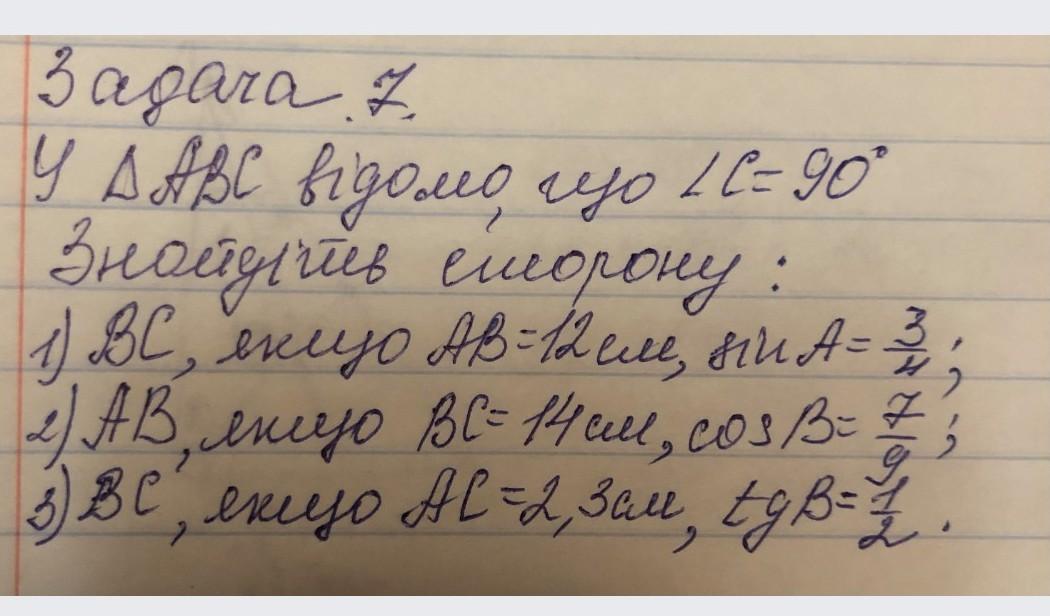 Задача 7.
У ΔABC відомо, що ∠C = 90°
Знайдіть сторону :
1) BC, якщо AB = 12 см, sin A = 3/4 ;
2) AB, якщо BC = 14 см, cos B = 7/9 ;
3) BC, якщо AC = 2,3 см, tg B = 1/2 .